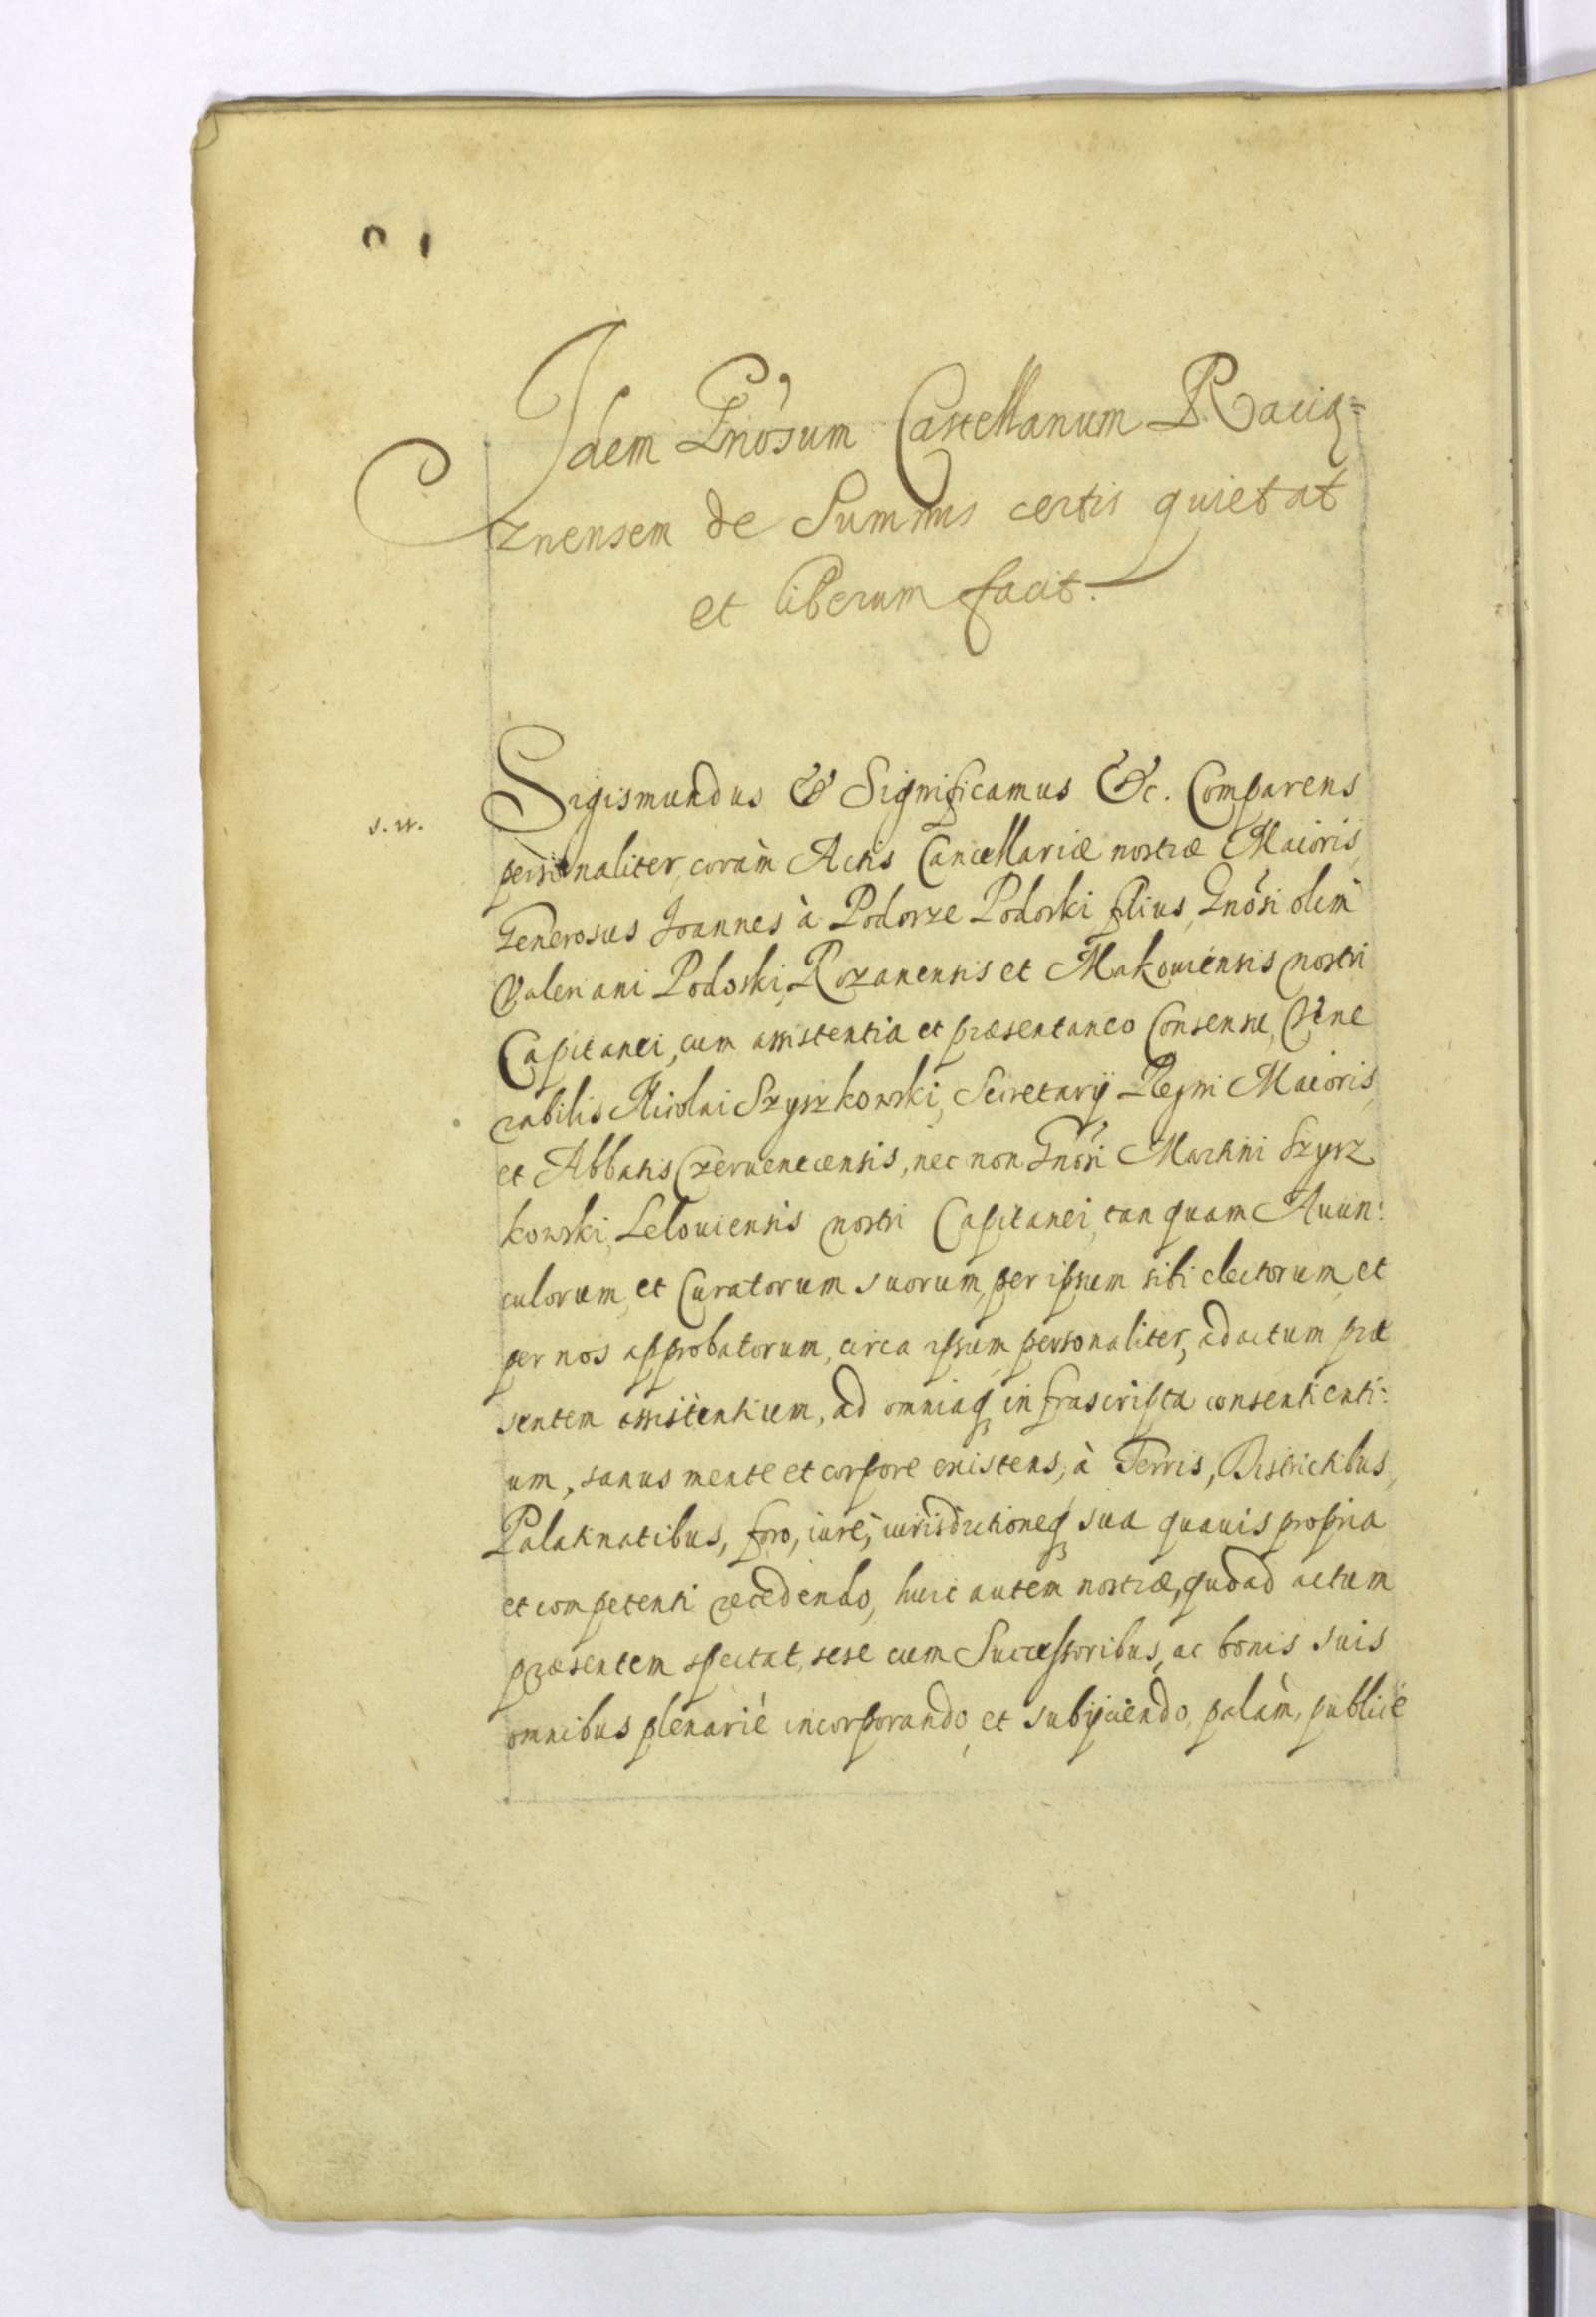 Idem Gnōsum Castellanum Racią=
znensem de Summis certis quietat
et liberum facit.
Sigismundus & Significamus &c. Comparens
personaliter, coràm Actis Cancellariæ nostræ Maioris,
Generosus Joannes à Podosze Podoski filius Gnōsi olim
Valeriani Podoski, Rozanensis et Makouiensis nostri
Capitanei, cum assistentia et præsentaneo Consensu, Vene
rabilis Nicolai Szyszkowski, Secretarij Regni Maioris,
et Abbatis Czeruenecensis, nec non Gnōsi Martini Szysz
kowski, Lelouiensis nostri Capitanei, tanquam Auun:
culorum, et Curatorum suorum, per ipsum sibi electorum, et
per nos approbatorum, circa ipsum personaliter, ad actum præ
sentem assistentium, ad omniaq infrascripta consentienti:
um, sanus mente et corpore existens, à Terris, Districtibus,
Palatinatibus, foro, iure, iurisdictioneq sua quauis propria
et competenti recedendo, huic autem nostræ, quoad actum
præsentem spectat, sese cum Successoribus, ac bonis suis
omnibus plenariè incorporando, et subijciendo, palàm, publicè